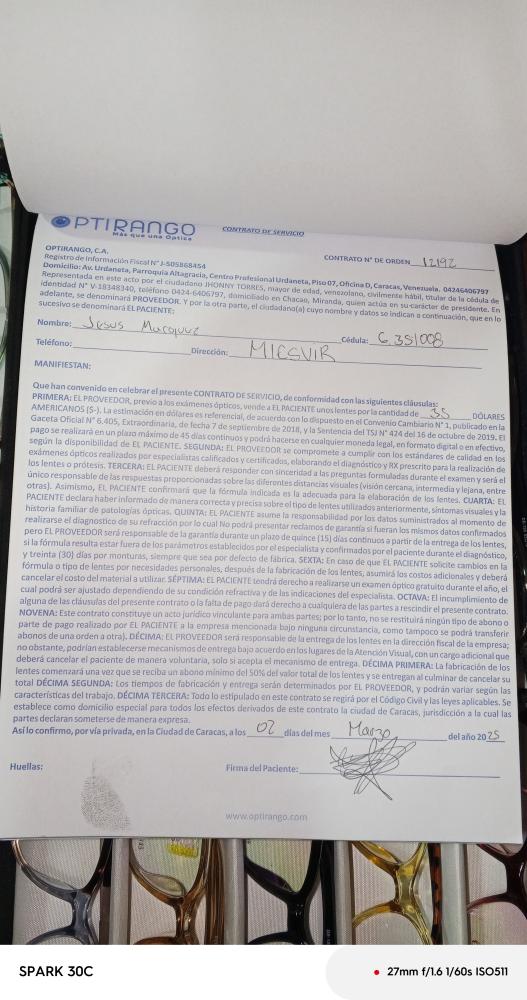 OPTIRANGO
Más que una Óptica
CONTRATO DE SERVICIO
OPTIRANGO, C.A.
Registro de Información Fiscal N° J-505868454
CONTRATO N° DE ORDEN 12192
Domicilio: Av. Urdaneta, Parroquia Altagracia, Centro Profesional Urdaneta, Piso 07, Oficina D, Caracas, Venezuela. 04246406797
Representada en este acto por el ciudadano JHONNY TORRES, mayor de edad, venezolano, civilmente hábil, titular de la cédula de
identidad N° V-18348340, teléfono 0424-6406797, domiciliado en Chacao, Miranda, quien actúa en su carácter de presidente. En
adelante, se denominará PROVEEDOR. Y por la otra parte, el ciudadano(a) cuyo nombre y datos se indican a continuación, que en lo
sucesivo se denominará EL PACIENTE:
Nombre: Jesus Marquez Cédula: 6.351008
Teléfono: Dirección: MICSVIR
MANIFIESTAN:
Que han convenido en celebrar el presente CONTRATO DE SERVICIO, de conformidad con las siguientes cláusulas:
PRIMERA: EL PROVEEDOR, previo a los exámenes ópticos, vende a EL PACIENTE unos lentes por la cantidad de 35 DÓLARES
AMERICANOS ($-). La estimación en dólares es referencial, de acuerdo con lo dispuesto en el Convenio Cambiario N° 1, publicado en la
Gaceta Oficial N° 6.405, Extraordinaria, de fecha 7 de septiembre de 2018, y la Sentencia del TSJ N° 424 del 16 de octubre de 2019. El
pago se realizará en un plazo máximo de 45 días continuos y podrá hacerse en cualquier moneda legal, en formato digital o en efectivo,
según la disponibilidad de EL PACIENTE. SEGUNDA: EL PROVEEDOR se compromete a cumplir con los estándares de calidad en los
exámenes ópticos realizados por especialistas calificados y certificados, elaborando el diagnóstico y RX prescrito para la realización de
los lentes o prótesis. TERCERA: EL PACIENTE deberá responder con sinceridad a las preguntas formuladas durante el examen y será el
único responsable de las respuestas proporcionadas sobre las diferentes distancias visuales (visión cercana, intermedia y lejana, entre
otras). Asimismo, EL PACIENTE confirmará que la fórmula indicada es la adecuada para la elaboración de los lentes. CUARTA: EL
PACIENTE declara haber informado de manera correcta y precisa sobre el tipo de lentes utilizados anteriormente, síntomas visuales y la
historia familiar de patologías ópticas. QUINTA: EL PACIENTE asume la responsabilidad por los datos suministrados al momento de
realizarse el diagnostico de su refracción por lo cual No podrá presentar reclamos de garantía si fueran los mismos datos confirmados
pero EL PROVEEDOR será responsable de la garantía durante un plazo de quince (15) días continuos a partir de la entrega de los lentes,
si la fórmula resulta estar fuera de los parámetros establecidos por el especialista y confirmados por el paciente durante el diagnóstico,
y treinta (30) días por monturas, siempre que sea por defecto de fábrica. SEXTA: En caso de que EL PACIENTE solicite cambios en la
fórmula o tipo de lentes por necesidades personales, después de la fabricación de los lentes, asumirá los costos adicionales y deberá
cancelar el costo del material a utilizar. SÉPTIMA: EL PACIENTE tendrá derecho a realizarse un examen óptico gratuito durante el año, el
cual podrá ser ajustado dependiendo de su condición refractiva y de las indicaciones del especialista. OCTAVA: El incumplimiento de
alguna de las cláusulas del presente contrato o la falta de pago dará derecho a cualquiera de las partes a rescindir el presente contrato.
NOVENA: Este contrato constituye un acto jurídico vinculante para ambas partes; por lo tanto, no se restituirá ningún tipo de abono o
parte de pago realizado por EL PACIENTE a la empresa mencionada bajo ninguna circunstancia, como tampoco se podrá transferir
abonos de una orden a otra). DÉCIMA: EL PROVEEDOR será responsable de la entrega de los lentes en la dirección fiscal de la empresa;
no obstante, podrían establecerse mecanismos de entrega bajo acuerdo en los lugares de la Atención Visual, con un cargo adicional que
deberá cancelar el paciente de manera voluntaria, solo si acepta el mecanismo de entrega. DÉCIMA PRIMERA: La fabricación de los
lentes comenzará una vez que se reciba un abono mínimo del 50% del valor total de los lentes y se entregan al culminar de cancelar su
total DÉCIMA SEGUNDA: Los tiempos de fabricación y entrega serán determinados por EL PROVEEDOR, y podrán variar según las
características del trabajo. DÉCIMA TERCERA: Todo lo estipulado en este contrato se regirá por el Código Civil y las leyes aplicables. Se
establece como domicilio especial para todos los efectos derivados de este contrato la ciudad de Caracas, jurisdicción a la cual las
partes declaran someterse de manera expresa.
Así lo confirmo, por vía privada, en la Ciudad de Caracas, a los 02 días del mes Marzo del año 2025
Huellas:
Firma del Paciente:
www.optirango.com
SPARK 30C
27mm f/1.6 1/60s ISO511